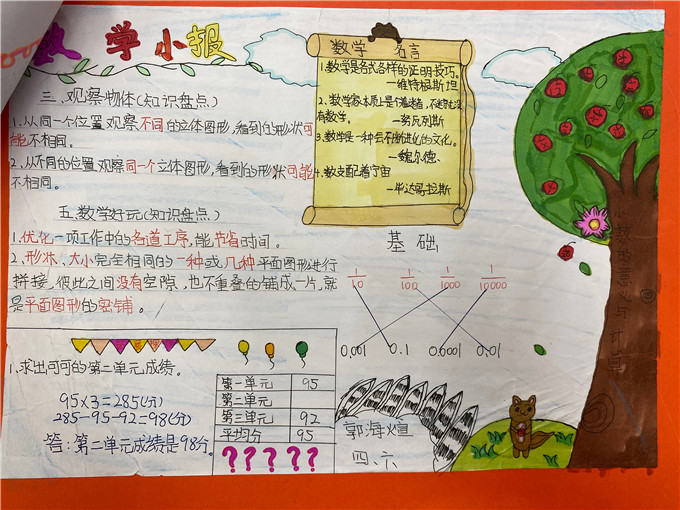 数学小报
三、观察物体(知识盘点)
1.从同一个位置观察不同的立体图形,看到的形状可
能不相同。
2.从不同的位置观察同一个立体图形,看到的形状可能
不相同。
五、数学好玩(知识盘点)
1.优化一项工作中的各道工序,能节省时间。
2.形状、大小完全相同的一种或几种平面图形进行
拼接,彼此之间没有空隙,也不重叠的铺成一片,就
是平面图形的密铺。
1.求出可可的第二单元成绩。
95×3=285(分)
285-95-92=98(分)
答:第二单元成绩是98分。
第一单元 95
第二单元
第三单元 92
平均分 95
?????
数学 名言
1.数学是各式各样的证明技巧。
—维特根斯坦
2.数学家本质上是个着迷者,不迷就没
有数学。
—努瓦列斯
3.数学是一种会不断进化的文化。
—魏尔德。
4.数支配着宇宙
—毕达哥拉斯
基础
1/10 1/100 1/1000 1/10000
0.001 0.1 0.0001 0.01
郭海煊
四、六